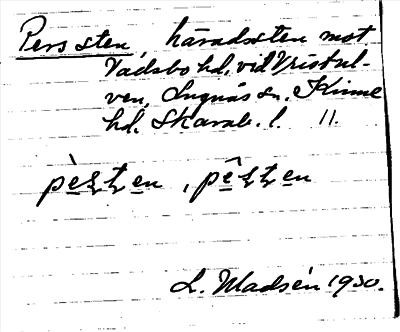 Pers sten, häradssten mot
Vadsbo hd. vid Kristul-
ven, Lugnås sn. Kinne
hd. Skarab. l. 11.
pèʂʈen, pêʂʈen
L. Madsén 1930.